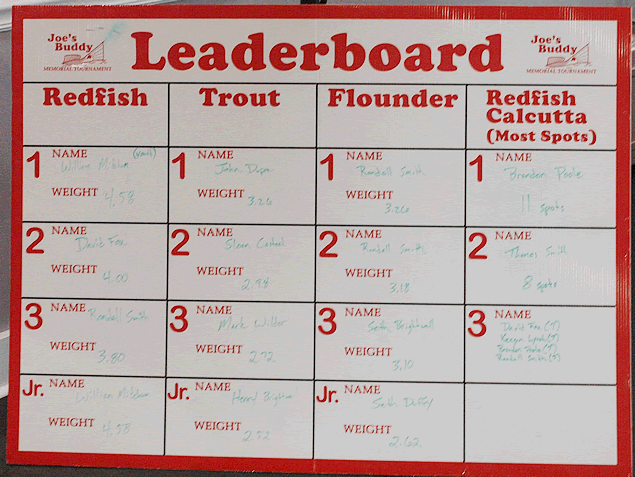 Joe's
Buddy
MEMORIAL TOURNAMENT
Leaderboard
Joe's
Buddy
MEMORIAL TOURNAMENT
Redfish
Trout
Flounder
Redfish
Calcutta
(Most Spots)
1 NAME
William
WEIGHT 4.53
1 NAME
John
WEIGHT 3.26
1 NAME
Randall Smith
WEIGHT 3.26
1 NAME
Brandon Poole
11 spots
2 NAME
David Fox
WEIGHT 4.00
2 NAME
Sloan
WEIGHT 2.98
2 NAME
Randall Smith
WEIGHT 3.18
2 NAME
Thomas Smith
8 spots
3 NAME
Randall Smith
WEIGHT 3.80
3 NAME
Mark Wilder
WEIGHT 2.72
3 NAME
Seth Brightwell
WEIGHT 3.10
3 NAME
David Fox (5)
Keegan Lynch (5)
Brandon Poole (5)
Randall Smith (5)
Jr. NAME
William
WEIGHT 4.53
Jr. NAME
Henry
WEIGHT 2.52
Jr. NAME
Seth Duffy
WEIGHT 2.62